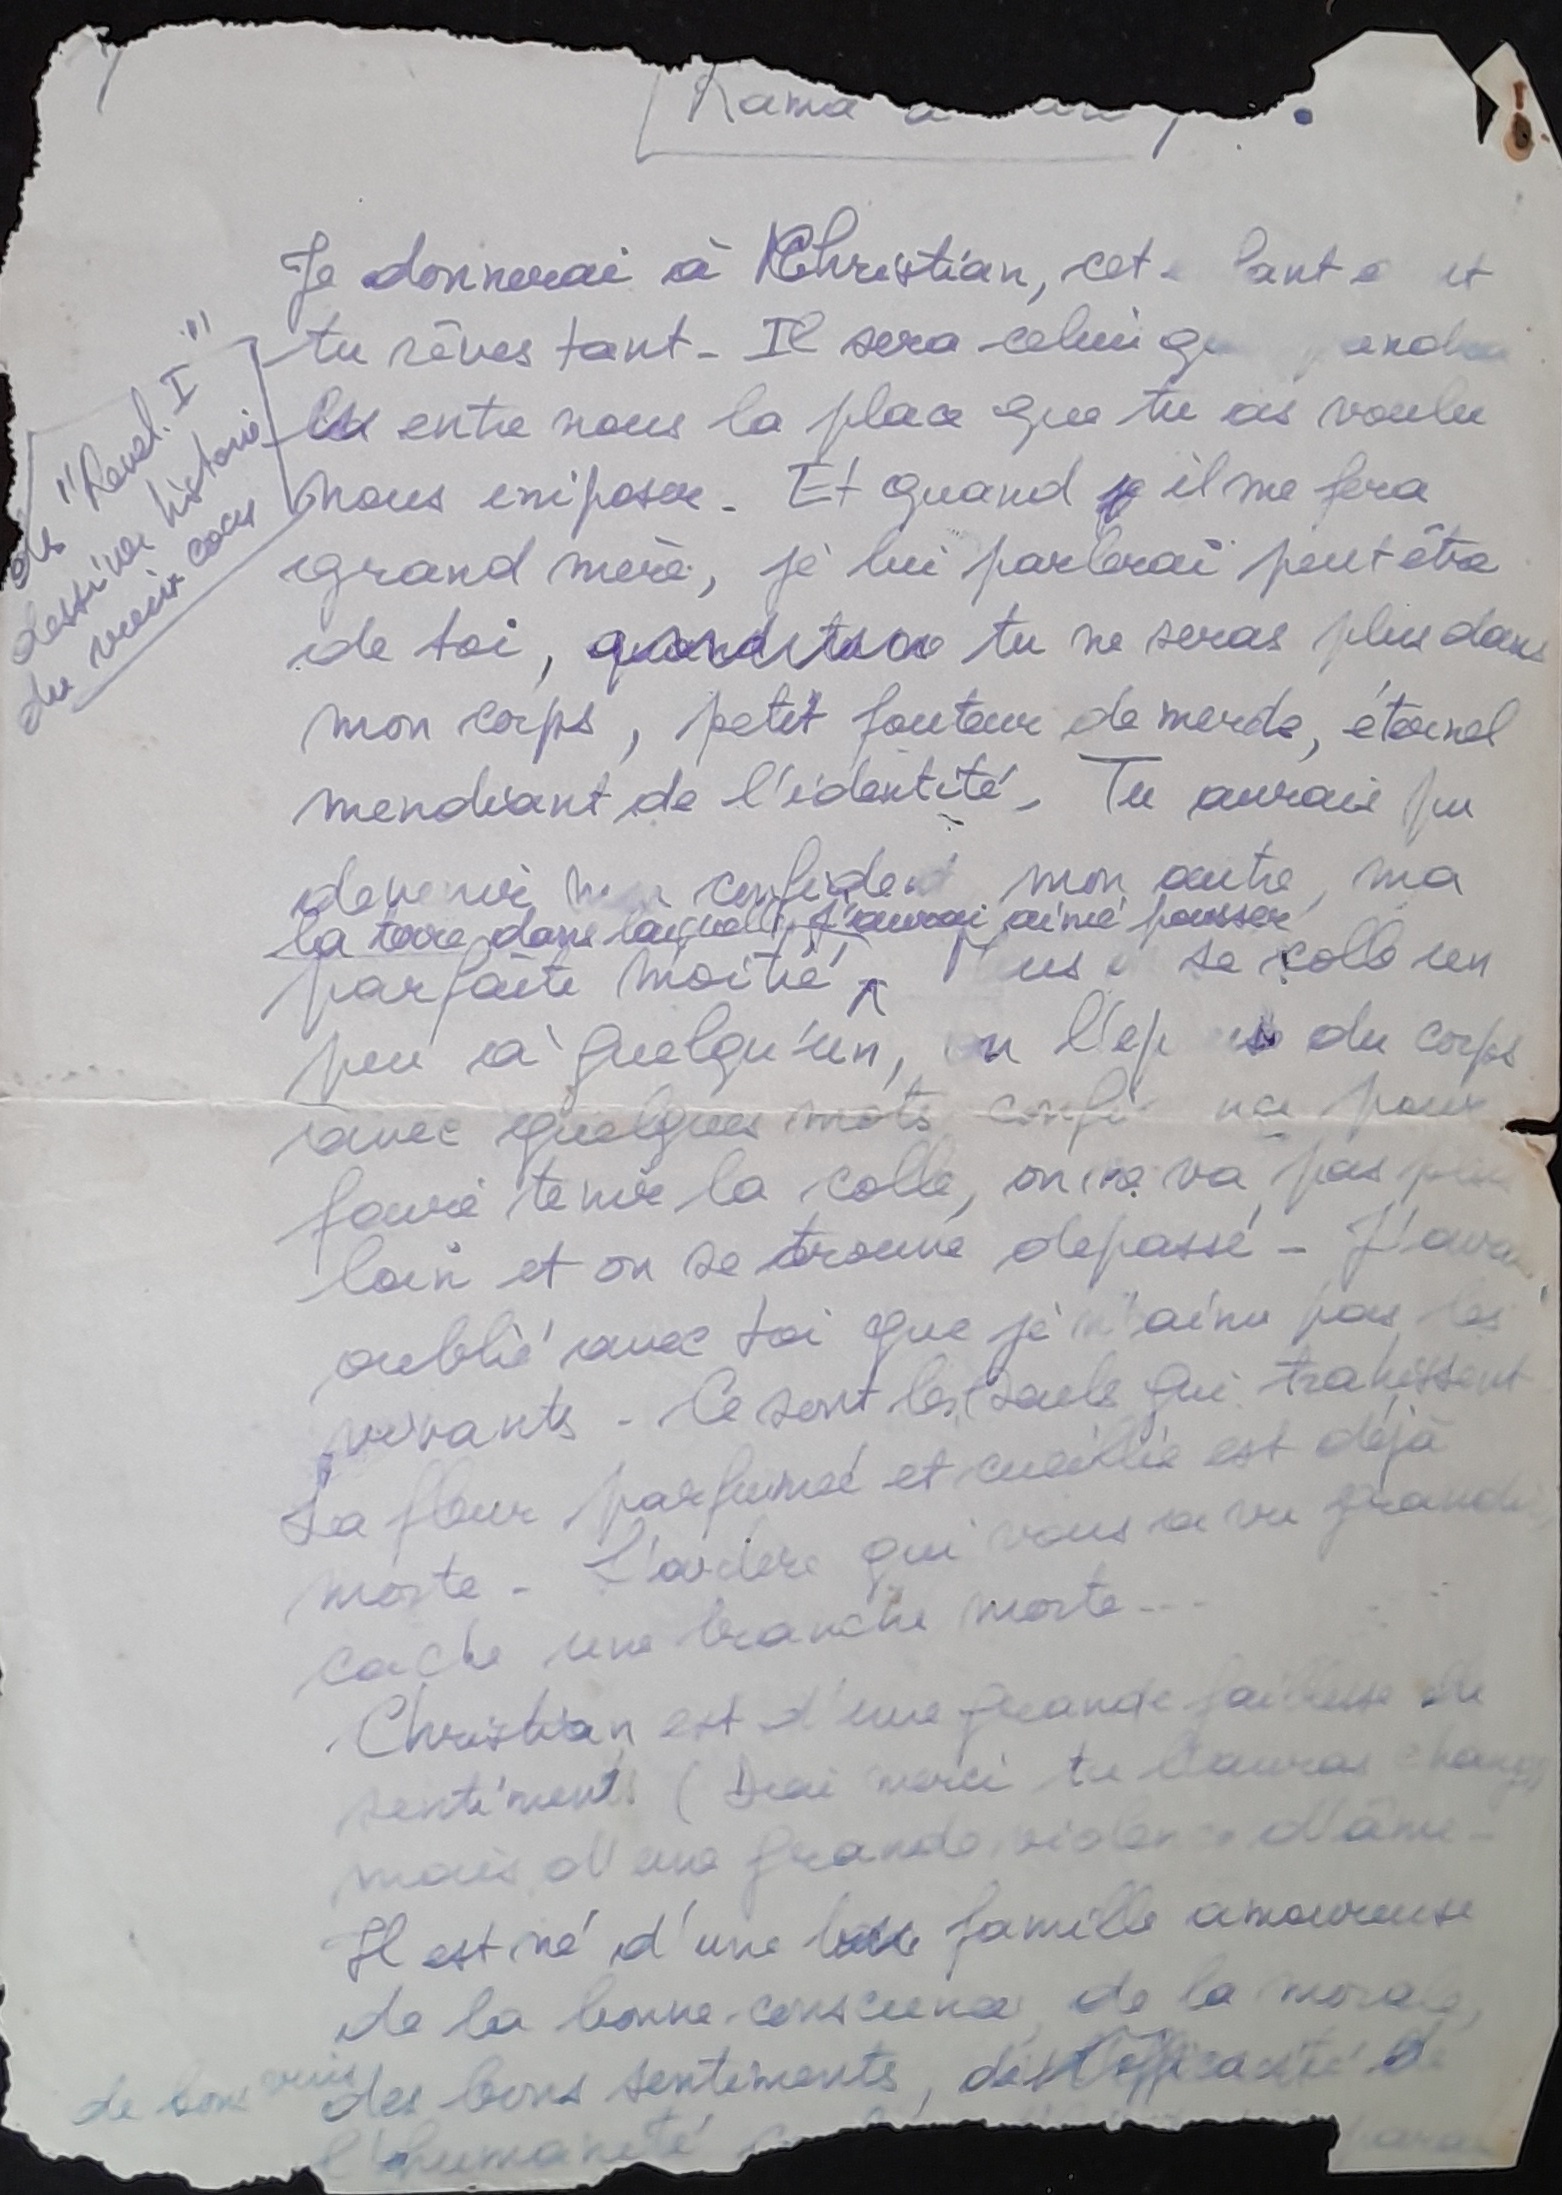 Rama
Je donnerai à Christian, cet
tu rêves tant - Il sera celui
entre nous la place que tu as voulu
nous imposer - Et quand il me fera
grand mère, je lui parlerai peut être
de toi, tu ne seras plus dans
mon corps, petit fouteur de merde, éternel
mendiant de l'identité, Tu aurais pu
devenir confident mon autre, ma
la terre dans laquelle j'aurai aimé pousser
parfaite moitié se colle un
peu à quelqu'un, du corps
avec quelques mots pour
faire tenir la colle, on ne va pas plus
loin et on se trouve depassé - J'avais
oublié avec toi que je n'aime pas les
vivants - Ce sont les seuls qui trahissent
La fleur parfumée et cueillie est déjà
morte - L'arbre qui vous a vu grandir,
cache une branche morte...
Christian est d'une grande faiblesse de
sentiments ( merci tu l'auras changé
mais d'une grande violence d'âme -
Il est né d'une famille amoureuse
de la bonne conscience, de la morale,
des bons sentiments, de
l'humanité
dessiner histoire
du vieux cocu
de bons